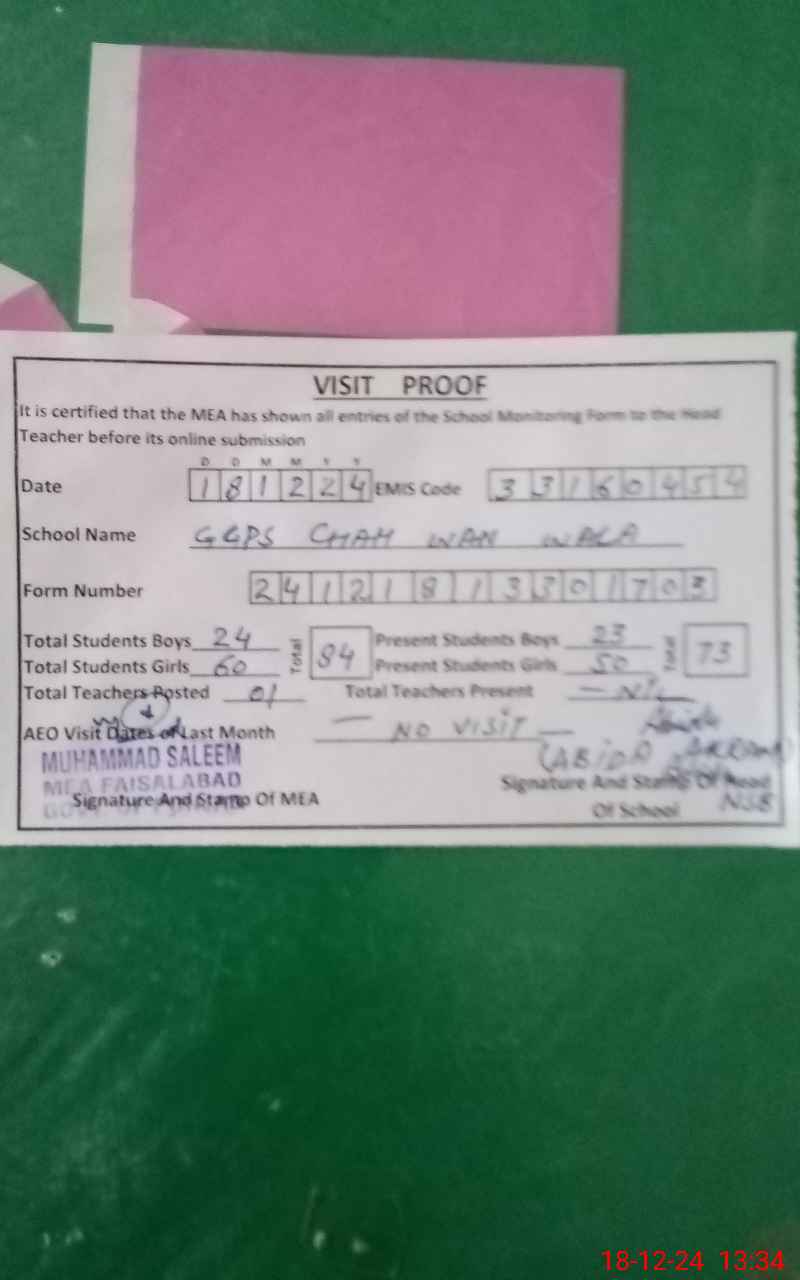 VISIT PROOF
It is certified that the MEA has shown all entries of the School Monitoring Form to the Head
Teacher before its online submission
D D M M Y Y
Date 181224 EMIS Code 33160454
School Name GGPS CHAH WAN WALA
Form Number 24121813301703
Total Students Boys 24 Total 84 Present Students Boys 23 Total 73
Total Students Girls 60 Present Students Girls 50
Total Teachers Posted 01 Total Teachers Present — NIL
AEO Visit Dates of Last Month — NO VISIT —
(ABIDA AKRAM)
MUHAMMAD SALEEM
MEA FAISALABAD
Signature And Stamp Of MEA
Signature And Stamp Of Head
Of School NSB
18-12-24 13:34